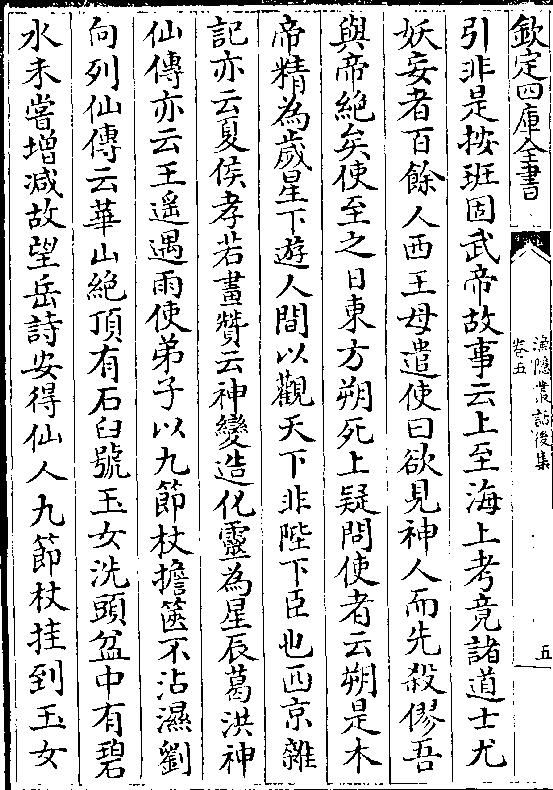 欽定四庫全書
漁隱叢話後集
卷五
五
引非是按班固武帝故事云上至海上考竟諸道士尤
妖妄者百餘人西王母遣使曰欲見神人而先殺僇吾
與帝絶矣使至之日東方朔死上疑問使者云朔是木
帝精為歲星下遊人間以觀天下非陛下臣也西京雜
記亦云夏侯孝若畫贊云神變造化靈為星辰葛洪神
仙傳亦云王遥遇雨使弟子以九節杖擔篋不沾濕劉
向列仙傳云華山絶頂有石臼號玉女洗頭盆中有碧
水未嘗增減故望岳詩安得仙人九節杖拄到玉女